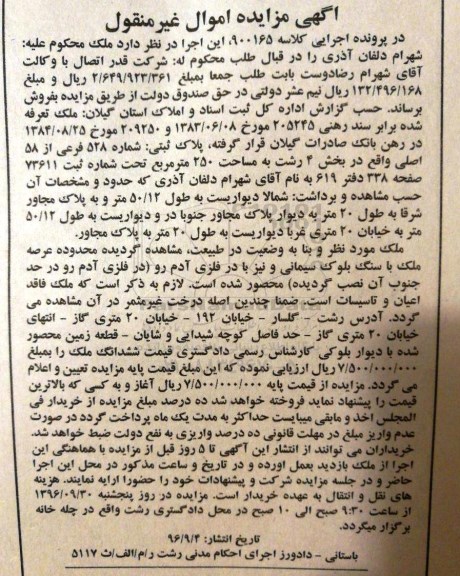 آگهی مزایده اموال غیرمنقول
در پرونده اجرایی کلاسه ۹۰۰۱۶۵، این اجرا در نظر دارد ملک محکوم علیه:
شهرام دلفان آذری را در قبال طلب محکوم له: شرکت قدر اتصال با وکالت
آقای شهرام رضادوست بابت طلب جمعا بمبلغ ۲/۶۴۹/۹۲۳/۳۶۱ ریال و مبلغ
۱۳۲/۴۹۶/۱۶۸ ریال نیم عشر دولتی در حق صندوق دولت از طریق مزایده بفروش
برساند. حسب گزارش اداره کل ثبت اسناد و املاک استان گیلان: ملک تعرفه
شده برابر سند رهنی ۲۰۵۲۴۵ مورخ ۱۳۸۳/۰۶/۰۸ و ۲۰۹۲۵۰ مورخ ۱۳۸۴/۰۸/۲۵
در رهن بانک صادرات گیلان قرار گرفته، پلاک ثبتی: شماره ۵۲۸ فرعی از ۵۸
اصلی واقع در بخش ۴ رشت به مساحت ۲۵۰ مترمربع تحت شماره ثبت ۷۳۶۱۱
صفحه ۳۳۸ دفتر ۶۱۹ به نام آقای شهرام دلفان آذری که حدود و مشخصات آن
حسب مشاهده و برداشت: شمالا دیواریست به طول ۵۰/۱۲ متر و به پلاک مجاور
شرقا به طول ۲۰ متر به دیوار پلاک مجاور جنوبا در و دیواریست به طول ۵۰/۱۲
متر به خیابان ۲۰ متری غربا دیواریست به طول ۲۰ متر به پلاک مجاور.
ملک مورد نظر و بنا به وضعیت در طبیعت، مشاهده گردیده محدوده عرصه
ملک با سنگ بلوک سیمانی و نیز با در فلزی آدم رو (در فلزی آدم رو در حد
جنوب آن نصب گردیده) محصور شده است. لازم به ذکر است که ملک فاقد
اعیان و تاسیسات است. ضمنا چندین اصله درخت غیرمثمر در آن مشاهده می
گردد. آدرس رشت - گلسار - خیابان ۱۹۲ - خیابان ۲۰ متری گاز - انتهای
خیابان ۲۰ متری گاز - حد فاصل کوچه شیدایی و شایان - قطعه زمین محصور
شده با دیوار بلوکی کارشناس رسمی دادگستری قیمت ششدانگ ملک را بمبلغ
۷/۵۰۰/۰۰۰/۰۰۰ ریال ارزیابی نموده که این مبلغ قیمت پایه مزایده تعیین و اعلام
می گردد. مزایده از قیمت پایه ۷/۵۰۰/۰۰۰/۰۰۰ ریال آغاز و به کسی که بالاترین
قیمت را پیشنهاد نماید فروخته خواهد شد ده درصد مبلغ مزایده از خریدار فی
المجلس اخذ و مابقی میبایست حداکثر به مدت یک ماه پرداخت گردد در صورت
عدم واریز مبلغ در مهلت قانونی ده درصد واریزی به نفع دولت ضبط خواهد شد.
خریداران می توانند از انتشار این آگهی تا ۵ روز قبل از مزایده با هماهنگی این
اجرا از ملک بازدید بعمل اورده و در تاریخ و ساعت مذکور در محل این اجرا
حاضر و در جلسه مزایده شرکت و پیشنهادات خود را حضورا ارایه نمایند. هزینه
های نقل و انتقال به عهده خریدار است. مزایده در روز پنجشنبه ۱۳۹۶/۰۹/۳۰
از ساعت ۹:۳۰ صبح الی ۱۰ صبح در محل دادگستری رشت واقع در چله خانه
برگزار میگردد.
تاریخ انتشار: ۹۶/۹/۴
باستانی - دادورز اجرای احکام مدنی رشت ر/م/الف/ث ۵۱۱۷